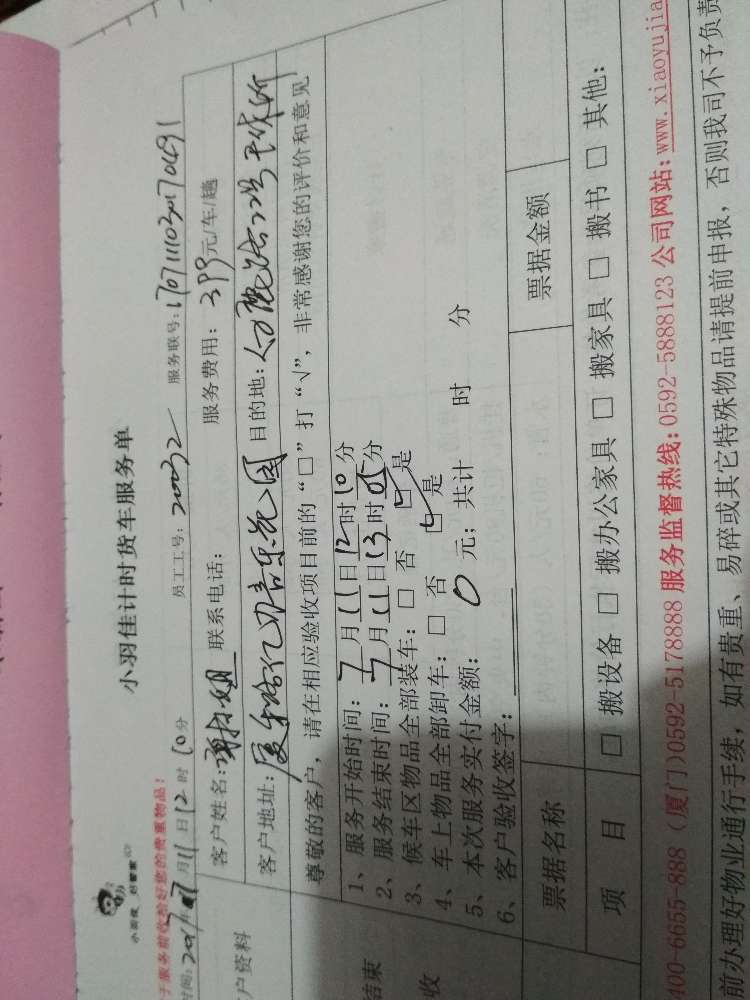 小羽佳计时货车服务单
小羽佳 好管家
于服务前收拾好您的贵重物品!
时间: 2017年7月11日12时10分 员工工号: 20032 服务联号: 1707111030170491
户资料
客户姓名: 联系电话: 服务费用: 399元/车/趟
客户地址: 目的地:
尊敬的客户，请在相应验收项目前的“□”打“√”，非常感谢您的评价和意见
结束
收
1、服务开始时间: 7月11日12时10分
2、服务结束时间: 7月11日13时05分
3、候车区物品全部装车: □ 否 ☑ 是
4、车上物品全部卸车: □ 否 ☑ 是
5、本次服务实付金额: 0 元; 共计 时 分
6、客户验收签字:
票据名称 票据金额
项 目 □ 搬设备 □ 搬办公家具 □ 搬家具 □ 搬书 □ 其他:
400-6655-888 (厦门)0592-5178888 服务监督热线: 0592-5888123 公司网站: www.xiaoyujia
前办理好物业通行手续，如有贵重、易碎或其它特殊物品请提前申报，否则我司不予负责